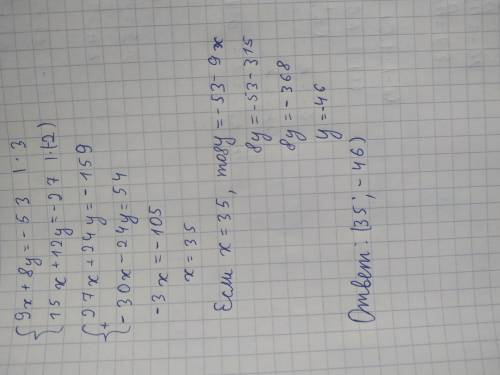 { 9x + 8y = -53 | · 3
15x + 12y = -27 | · (-2)
{ 27x + 24y = -159
+ -30x - 24y = 54
-3x = -105
x = 35
Если x = 35, то 8y = -53 - 9x
8y = -53 - 315
8y = -368
y = -46
Ответ: (35; -46)